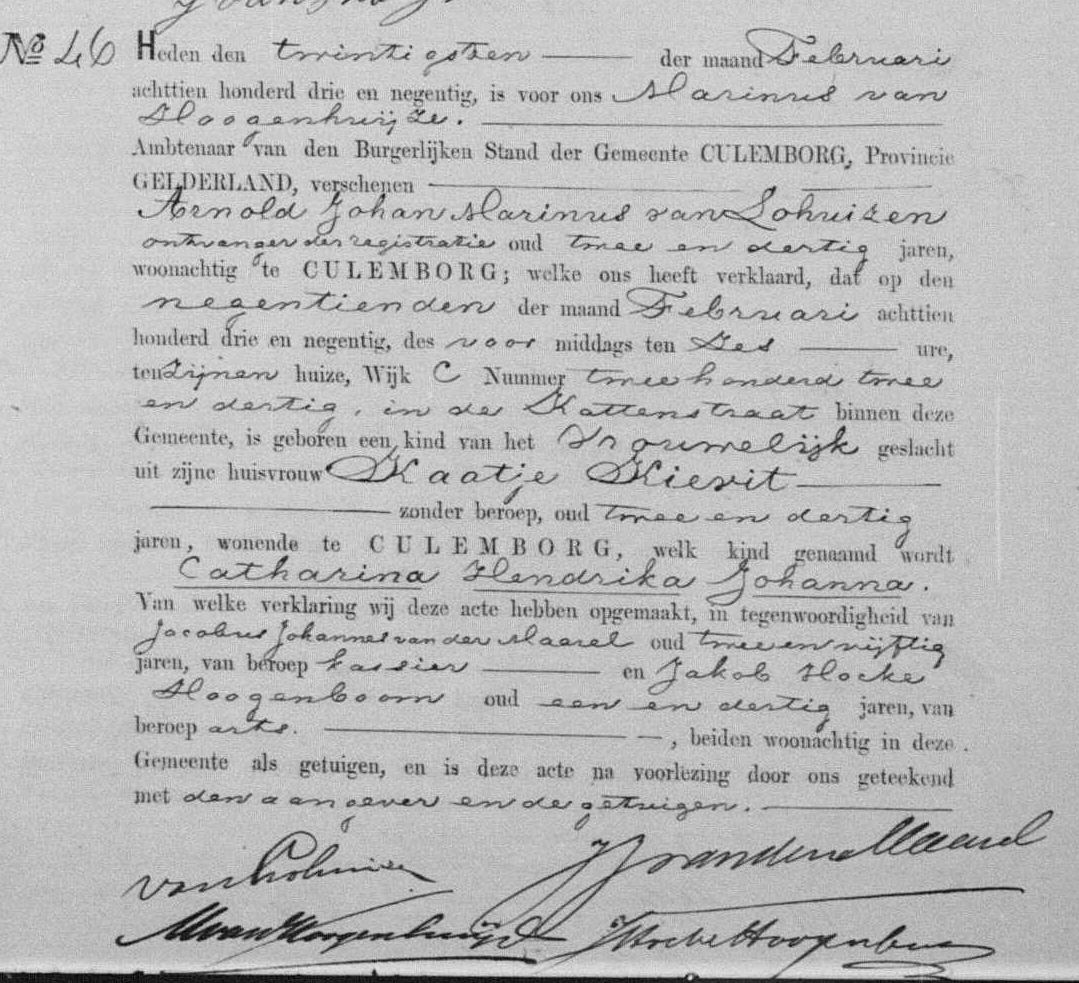 No 46 Heden den twintigsten der maand Februari
achttien honderd drie en negentig, is voor ons Marinus van
Hoogenhuijze.
Ambtenaar van den Burgerlijken Stand der Gemeente CULEMBORG, Provincie
GELDERLAND, verschenen
Arnold Johan Marinus van Lohuizen
ontvanger der registratie oud twee en dertig jaren,
woonachtig te CULEMBORG; welke ons heeft verklaard, dat op den
negentienden der maand Februari achttien
honderd drie en negentig, des voor middags ten zes ure,
ten zijnen huize, Wijk C Nummer twee honderd twee
en dertig, in de Kattenstraat binnen deze
Gemeente, is geboren een kind van het Vrouwelijk geslacht
uit zijne huisvrouw Kaatje Kievit
zonder beroep, oud twee en dertig
jaren, wonende te CULEMBORG, welk kind genaamd wordt
Catharina Hendrika Johanna.
Van welke verklaring wij deze acte hebben opgemaakt, in tegenwoordigheid van
Jacobus Johannes van der Maarel oud twee en vijftig
jaren, van beroep kassier en Jakob Hocke
Hoogenboom oud een en dertig jaren, van
beroep arts. , beiden woonachtig in deze
Gemeente als getuigen, en is deze acte na voorlezing door ons geteekend
met den aangever en de getuigen.
van Lohuizen JJ van der Maarel
M van Hoogenhuijze J Hocke Hoogenboom